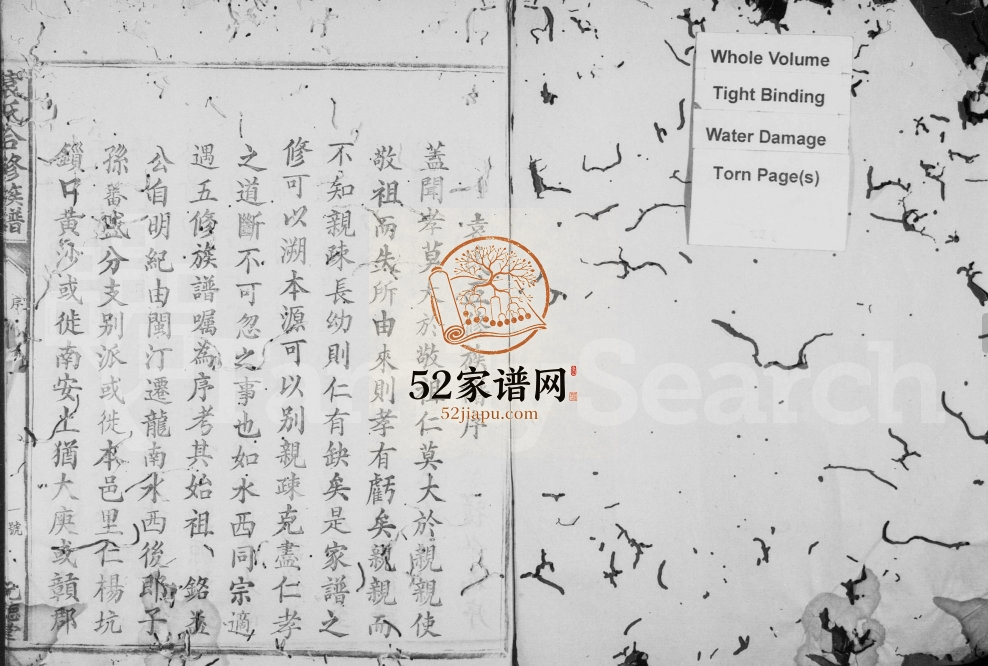 袁氏合修族譜
序
號
族 序
蓋聞孝莫大於敬 仁莫大於親親使
敬祖而失所由來則孝有虧矣親親而
不知親疎長幼則仁有缺矣是家譜之
修可以溯本源可以别親疎克盡仁孝
之道斷不可忽之事也如水西同宗適
遇五修族譜囑為序考其始祖 銘
公自明紀由閩汀遷龍南水西後郎子
孫蕃盛分支别派或徙本邑里仁楊坑
鎖口黄沙或徙南安上猶大庾或贛郡
Whole Volume
Tight Binding
Water Damage
Torn Page(s)
52家谱网
52jiapu.com
Search